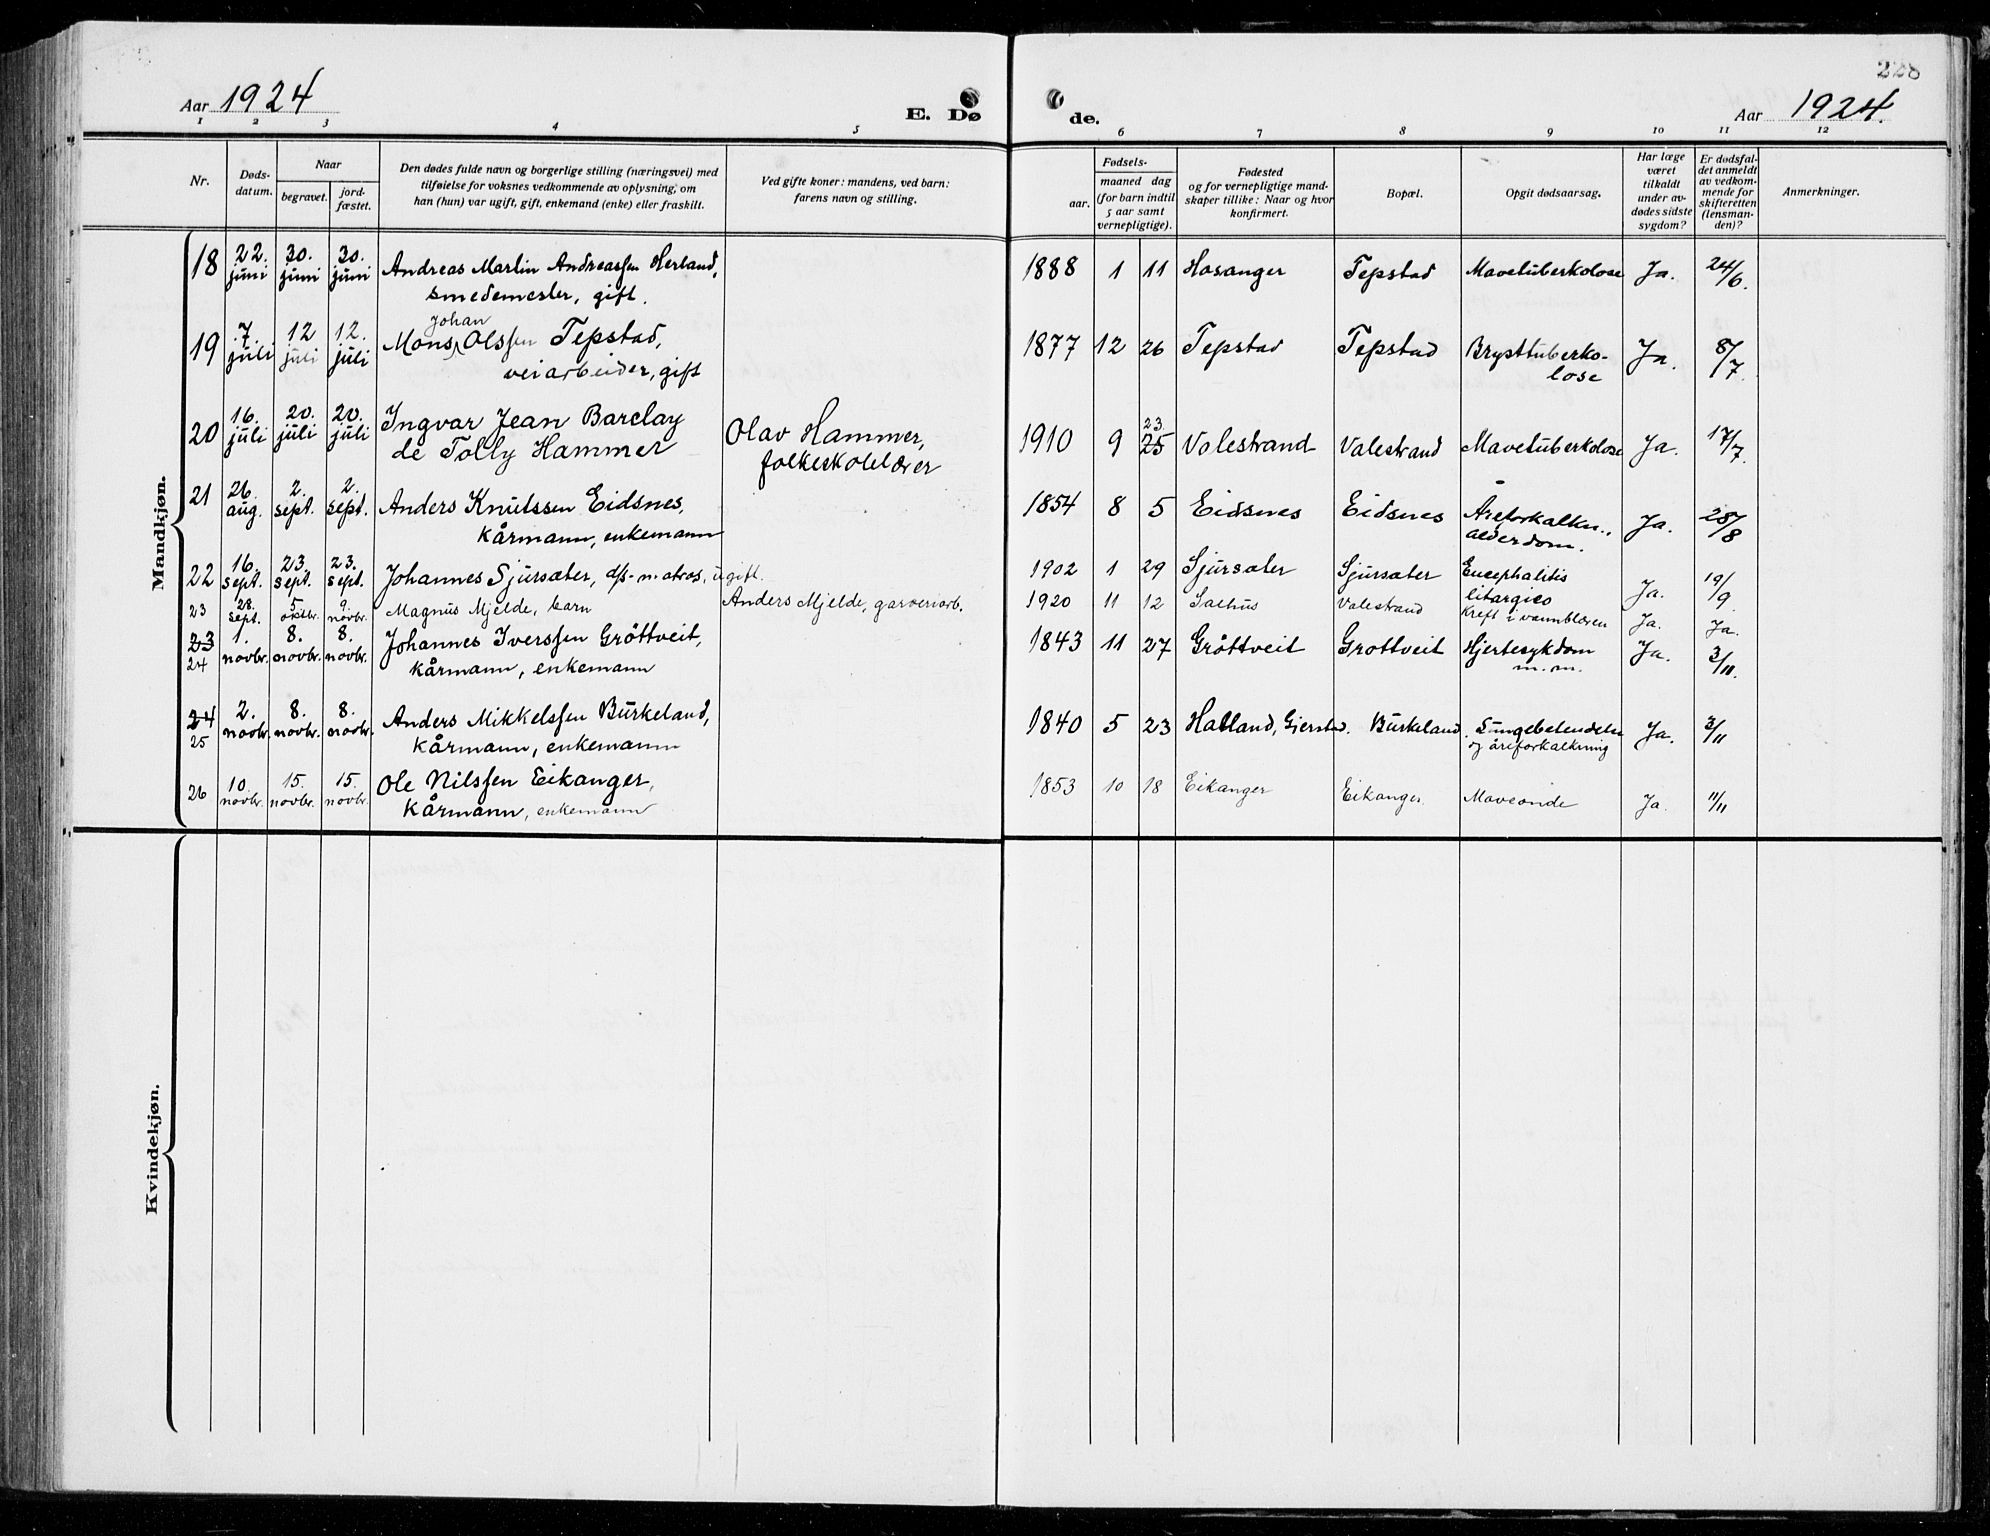 228
Aar 1924
E. Døde.
Aar 1924.
1 2 3 4 5 6 7 8 9 10 11 12
Nr.
Døds-
datum.
Naar
begravet.
jord-
fæstet.
Den dødes fulde navn og borgerlige stilling (næringsvei) med
tilføielse for voksnes vedkommende av oplysning, om
han (hun) var ugift, gift, enkemand (enke) eller fraskilt.
Ved gifte koner: mandens, ved barn:
farens navn og stilling.
Fødsels-
aar.
maaned dag
(for barn indtil
5 aar samt
vernepligtige).
Fødested
og for vernepligtige mand-
skaper tillike: Naar og hvor
konfirmert.
Bopæl.
Opgit dødsaarsag.
Har læge
været
tilkaldt
under av-
dødes sidste
sygdom?
Er dødsfal-
det anmeldt
av vedkom-
mende for
skifteretten
(lensman-
den)?
Anmerkninger.
Mandkjøn.
18 22. juni 30. juni 30. juni Andreas Martin Andreasssen Herland,
smedemester, gift.
1888 1 11 Hosanger Tepstad Mavetuberkolose Ja. 24/6.
19 7. juli 12 juli 12. juli Mons Johan Olsen Tepstad,
veiarbeider, gift
1877 12 26 Tepstad Tepstad Brysttuberko-
lose Ja. 8/7.
20 16. juli 20. juli 20. juli Ingvar Jean Barclay
de Tolly Hammer
Olav Hammer,
folkeskolelærer
1910 9 23. 25 Valestrand Valestrand Mavetuberkolose Ja. 17/7.
21 26. aug. 2. sept. 2. sept. Anders Knutssen Eidsnes,
kårmann, enkemann
1854 8 5 Eidsnes Eidsnes Åreforkalkn.,
alderdom. Ja. 28/8
22 16. sept. 23. sept. 23. sept. Johannes Sjursæter, d/s-matros, ugift.
1902 1 29 Sjursæter Sjursæter Encephalitis
litargico Ja. 19/9
23 28. sept. 5. oktbr. 9. novbr. Magnus Mjelde, barn
Anders Mjelde, garveriarb.
1920 11 12 Salhus Valestrand Kreft i vannblæren Ja. Ja.
23 24 1. novbr. 8. novbr. 8. novbr. Johannes Iverssen Gröttveit,
kårmann, enkemann
1843 11 27 Gröttveit Gröttveit Hjertesykdom
m.m. Ja. 3/11.
24 25 2. novbr. 8. novbr. 8. novbr. Anders Mikkelssen Burkeland,
kårmann, enkemann
1840 5 23 Hatland, Gjerstad. Burkeland Lungebetendelse
og åreforkalkning Ja. 3/11
26 10. novbr. 15. novbr. 15. novbr. Ole Nilssen Eikanger,
kårmann, enkemann
1853 10 18 Eikanger Eikanger. Maveonde Ja. 11/11
Kvindekjøn.